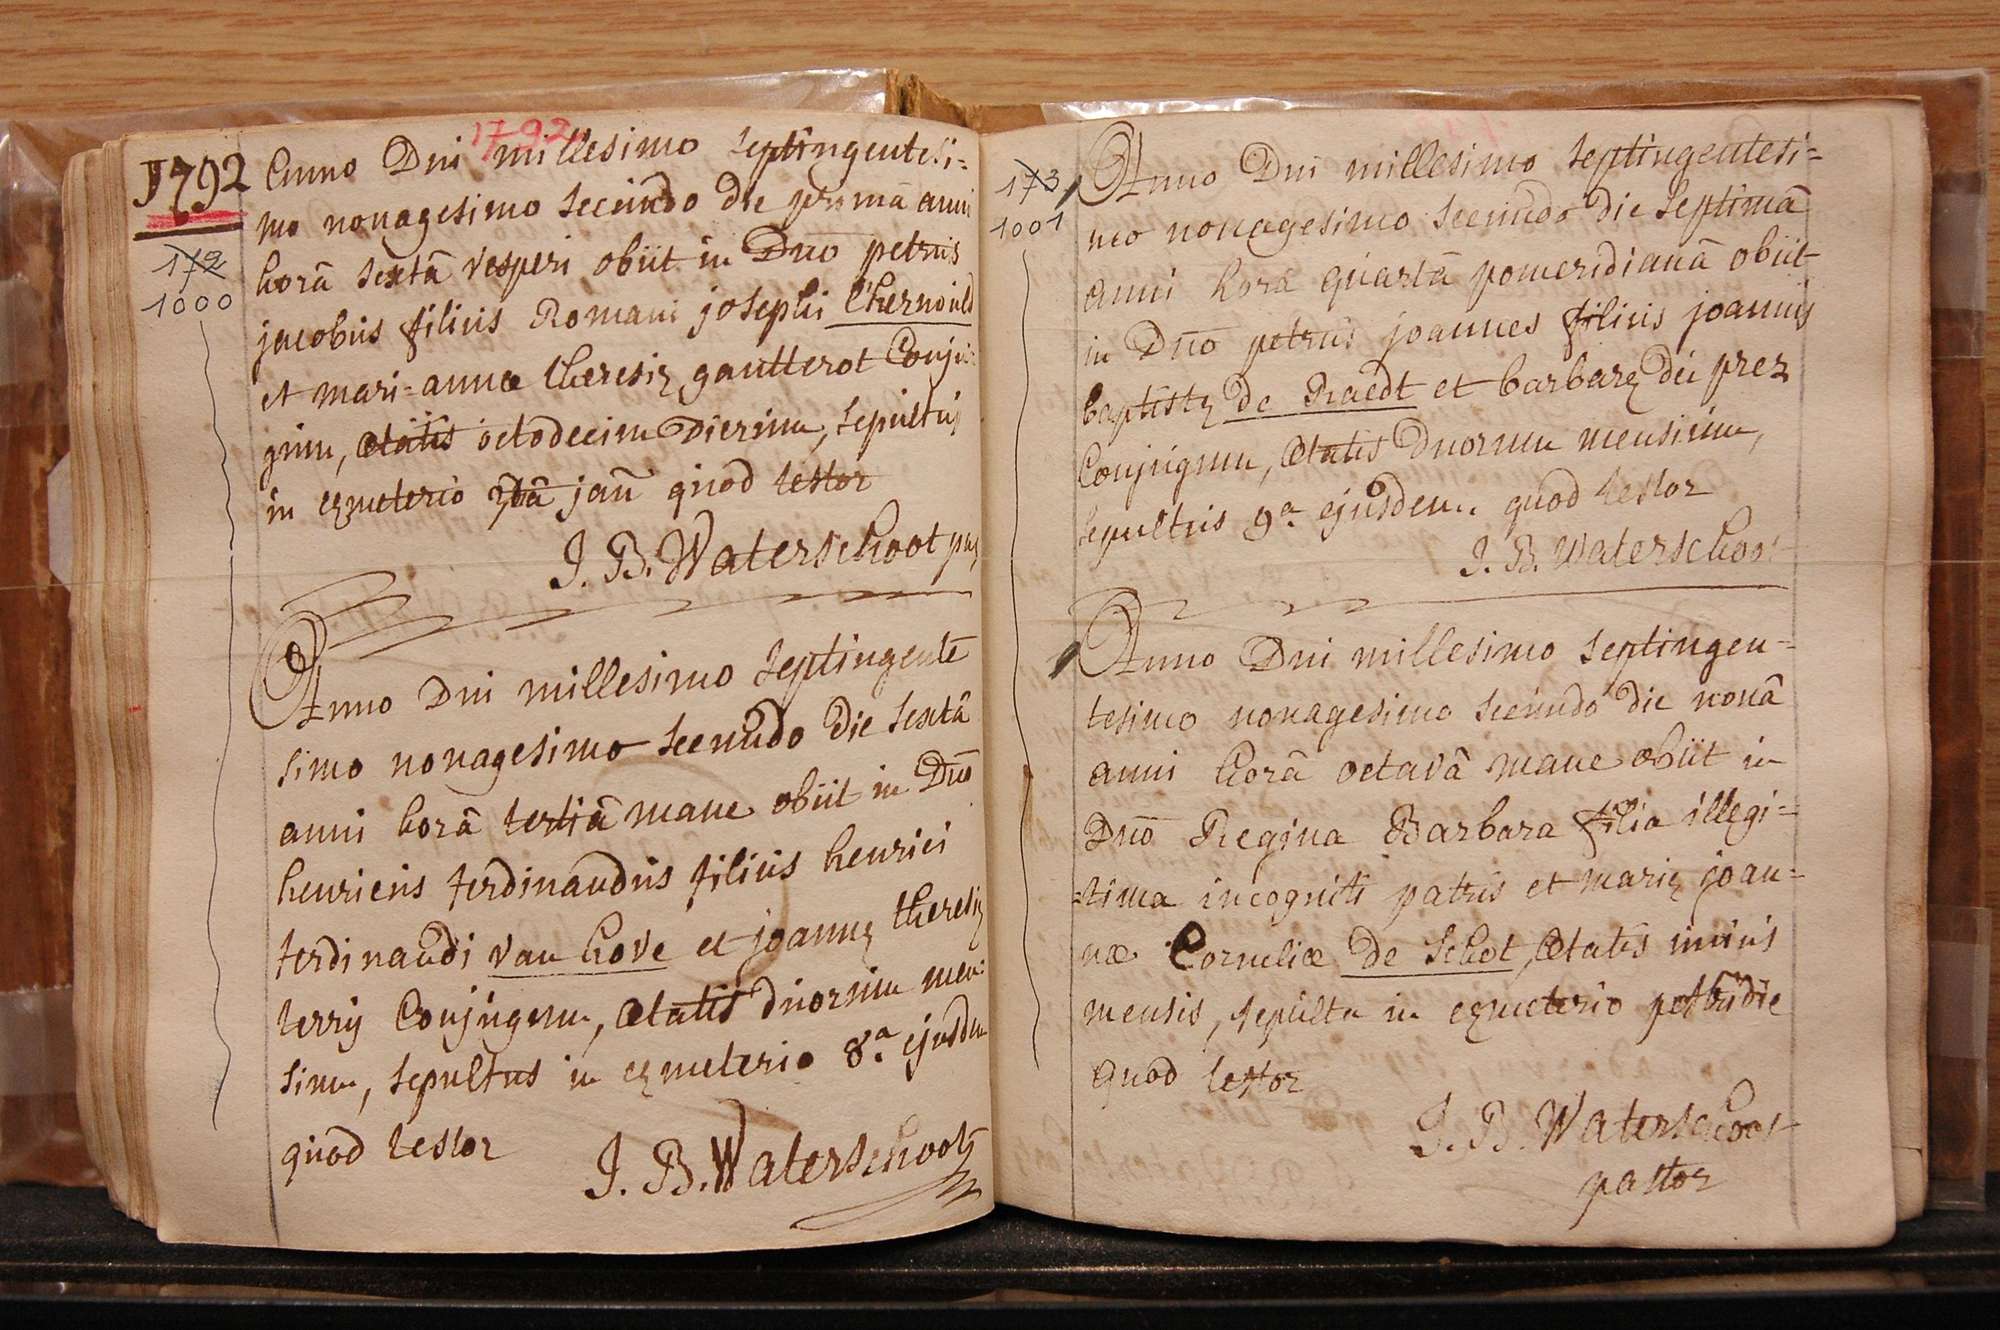 1792
1792
172
1000
Anno Dni millesimo septingentesi=
mo nonagesimo secundo die primâ anni
horâ sextâ vesperi obiit in Dno petrus
jacobus filius Romani josephi Lhernould
et mari=annæ theresiæ gautterot Conju=
gum, ætatis octodecim Dierum, sepultus
in cæmeterio jañ quod testor
J. B. Waterschoot
Anno Dni millesimo septingente
simo nonagesimo secundo die sextâ
anni horâ tertiâ mane obiit in Dno
henricus ferdinandus filius henrici
ferdinandi van hove et joannæ theresiæ
terrij Conjugum, ætatis duorum men=
sium, sepultus in cæmeterio 8.a ejusdem
quod testor
J. B. Waterschoot
173
1001
Anno Dni millesimo septingentesi=
mo nonagesimo secundo die septimâ
anni horâ quartâ pomeridianâ obiit
in Dno petrus joannes filius joannis
baptistæ de Raedt et barbaræ du prez
Conjugum, ætatis Duorum mensium,
sepultus 9.a ejusdem. quod testor
J. B. Waterschoot
Anno Dni millesimo septingen=
tesimo nonagesimo secundo die nonâ
anni horâ octavâ mane obiit in
Dno Regina Barbara filia illegi=
=tima incogniti patris et mariæ joan=
næ Corneliæ de Schot, ætatis unius
mensis, sepulta in cæmeterio postridie
quod testor
J. B. Waterschoot
pastor